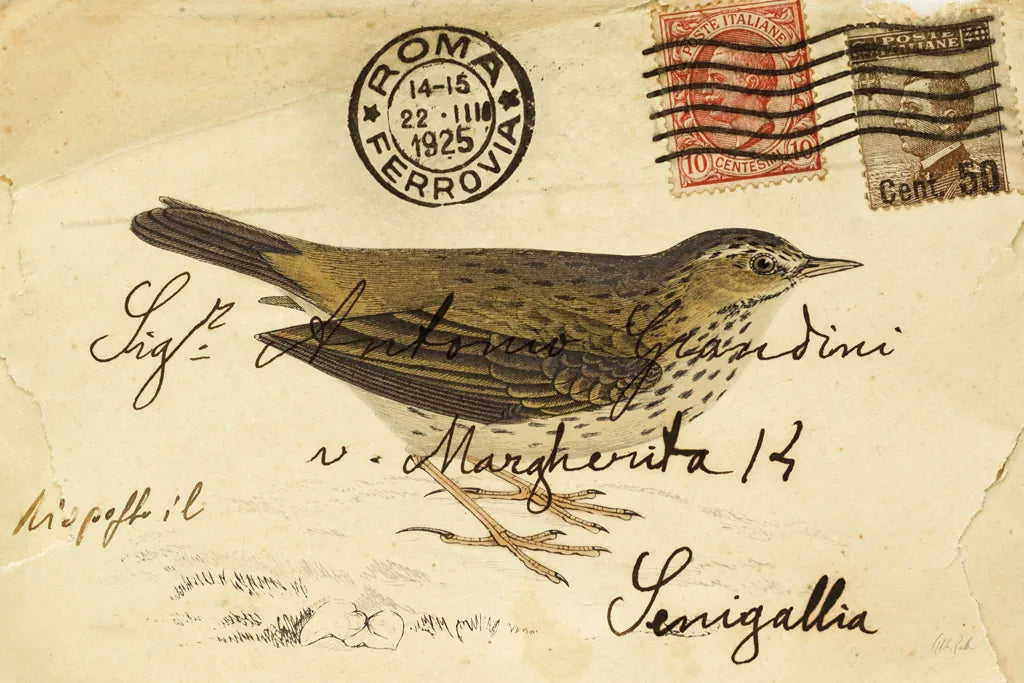 ROMA
14-15
22 · III
1925
FERROVIA
POSTE ITALIANE
10 CENTESIMI 10
POSTE ITALIANE
Cent. 50
Sigr. Antonio Giandini
v. Margherita 14
Risposto il
Senigallia